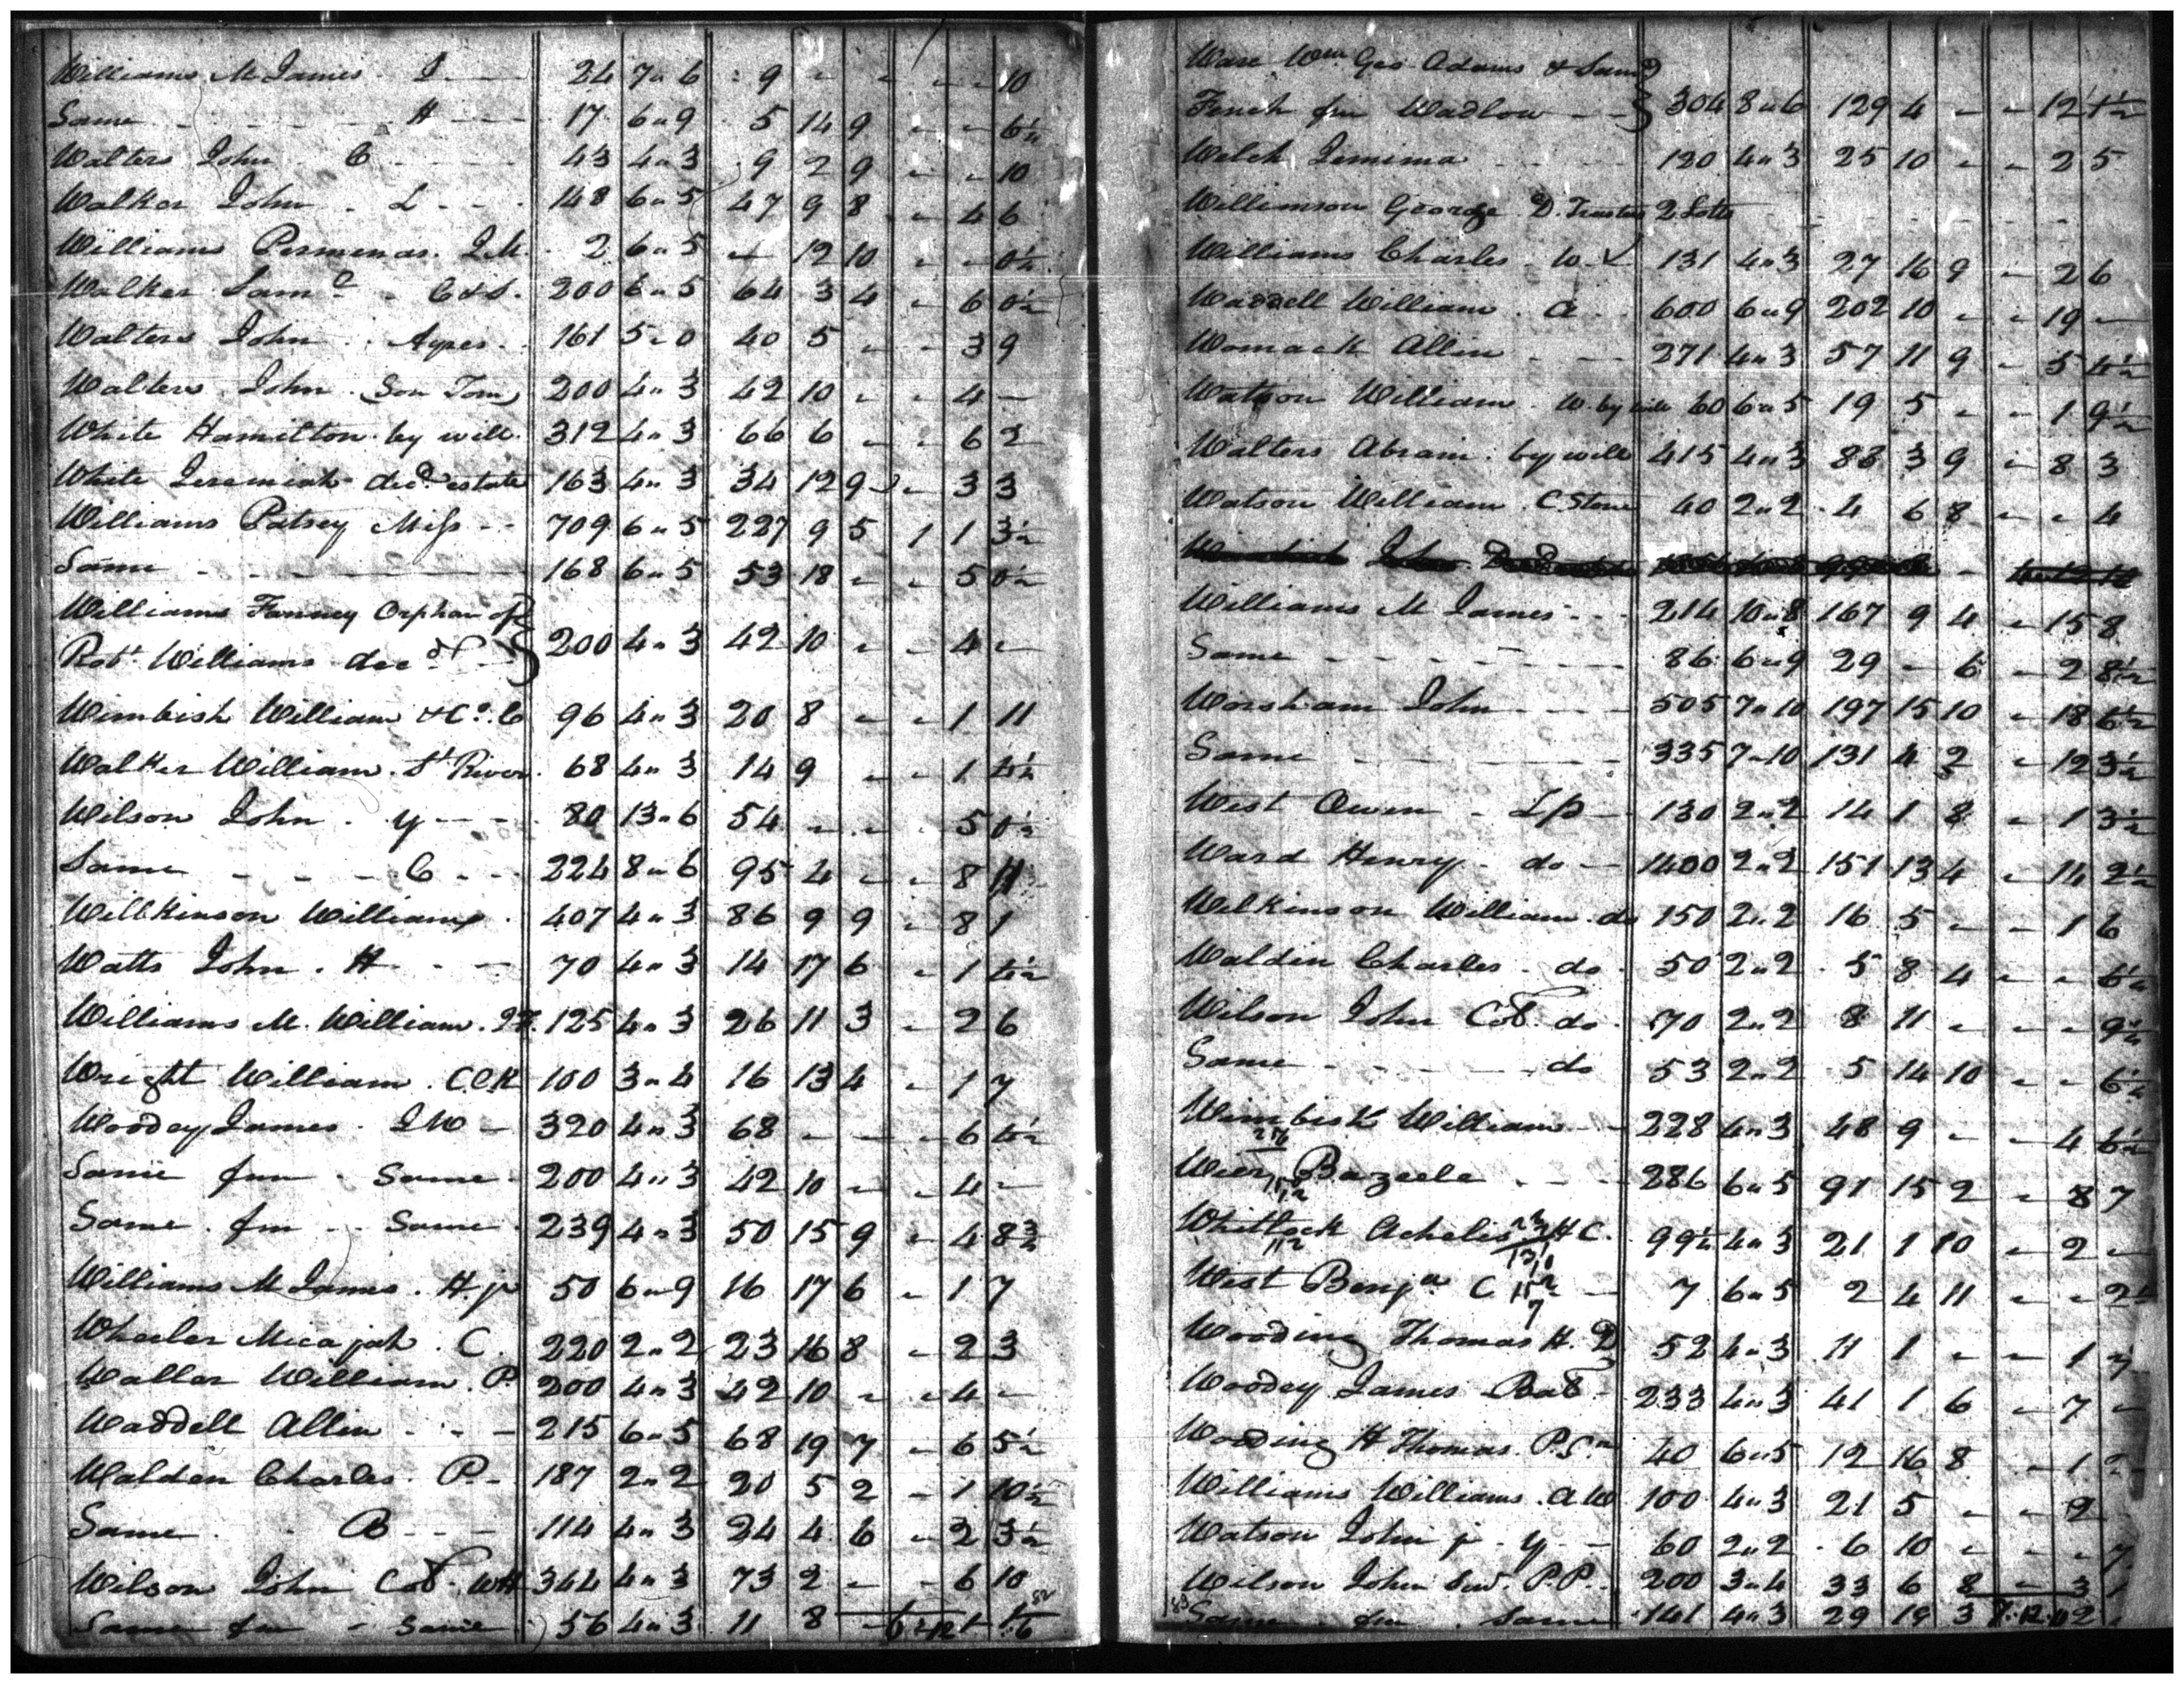 Williams M James J 24 7 " 6 9 - - - - 10
Same H 17 6 " 9 5 14 9 - - 6½
Walters John C 43 4 " 3 9 2 9 - - 10
Walker John L 148 6 " 5 47 9 8 - 4 6
Williams Permenas J.M. 2 6 " 5 - 12 10 - - 0½
Walker Sam¹ C&S. 200 6 " 5 64 3 4 - 6 0½
Walters John Ayres 161 5 " 0 40 5 - - 3 9
Walters John Son Tom 200 4 " 3 42 10 - - 4 -
White Hamilton by will 312 4 " 3 66 6 - - 6 2
White Jeremiah decd estate 163 4 " 3 34 12 9 - 3 3
Williams Patsey Miss 709 6 " 5 227 9 5 1 1 3½
Same 168 6 " 5 53 18 - - 5 0½
Williams Fanney Orphan of
Robt Williams decd 200 4 " 3 42 10 - - 4 -
Wimbish William & Co. C 96 4 " 3 20 8 - - 1 11
Walker William St River 68 4 " 3 14 9 - - 1 4½
Wilson John Y 80 13 " 6 54 - - - 5 0½
Same C 224 8 " 6 95 4 - - 8 11
Willkinson William 407 4 " 3 86 9 9 - 8 1
Watts John H 70 4 " 3 14 17 6 - 1 4½
Williams M. William 125 4 " 3 26 11 3 - 2 6
Wright William C C K 100 3 " 4 16 13 4 - 1 7
Woodey James J W 320 4 " 3 68 - - - 6 4½
Same fm Same 200 4 " 3 42 10 - - 4 -
Same fm Same 239 4 " 3 50 15 9 - 4 8¾
Williams M James H. jr 50 6 " 9 16 17 6 - 1 7
Wheeler Micajah C. 220 2 " 2 23 16 8 - 2 3
Waller William P. 200 4 " 3 42 10 - - 4 -
Waddell Allin 215 6 " 5 68 19 7 - 6 5½
Walden Charles P. 187 2 " 2 20 5 2 - 1 10½
Same B 114 4 " 3 24 4 6 - 2 3½
Wilson John Col. WH 344 4 " 3 73 2 - - 6 10
Same fm Same 56 4 " 3 11 8
Ware Wm Geo Adams & Saml
Finch fm Wadlow 304 8 " 6 129 4 - - 12 1½
Welch Jemima 120 4 " 3 25 10 - - 2 5
Williamson George D. Trustee 2 Lotts
Williams Charles W 131 4 " 3 27 16 9 - 2 6
Waddell William A 600 6 " 9 202 10 - - 19 -
Womack Allin 271 4 " 3 57 11 9 - 5 4½
Watson William W. by will 60 6 " 5 19 5 - - 1 9½
Walters Abram by will 415 4 " 3 88 3 9 - 8 3
Watson William C Stone 40 2 " 2 4 6 8 - - 4
Williams M James 214 10 " 8 167 9 4 - 15 8
Same 86 6 " 9 29 - 6 - 2 8½
Worsham John 505 7 " 10 197 15 10 - 18 6½
Same 335 7 " 10 131 4 2 - 12 3½
West Owen LP 130 2 " 2 14 1 8 - 1 3½
Ward Henry do 1400 2 " 2 151 13 4 - 14 2½
Wilkinson William do 150 2 " 2 16 5 - - 1 6
Waldin Charles do 50 2 " 2 5 8 4 - - 6½
Wilson John Col. do 70 2 " 2 8 11 - - - 9½
Same do 53 2 " 2 5 14 10 - - 6½
Wimbish William 228 4 " 3 48 9 - - 4 6½
Wier Bazeele 286 6 " 5 91 15 2 - 8 7
Whitlock Achelis H C. 99½ 4 " 3 21 1 10 - 2 -
West Benja C 7 6 " 5 2 4 11 - - 2½
Wooding Thomas H. D 52 4 " 3 11 1 - - 1
Woodey James Bat 233 4 " 3 41 1 6 - 7 -
Wooding H Thomas 40 6 " 5 12 16 8 - 1
Williams William A W 100 4 " 3 21 5 - - 2
Watson John jr Y 60 2 " 2 6 10 - - - 7
Wilson John Senr. P.P. 200 3 " 4 33 6 8 - 3 1
Same fm Same 141 4 " 3 29 19 3